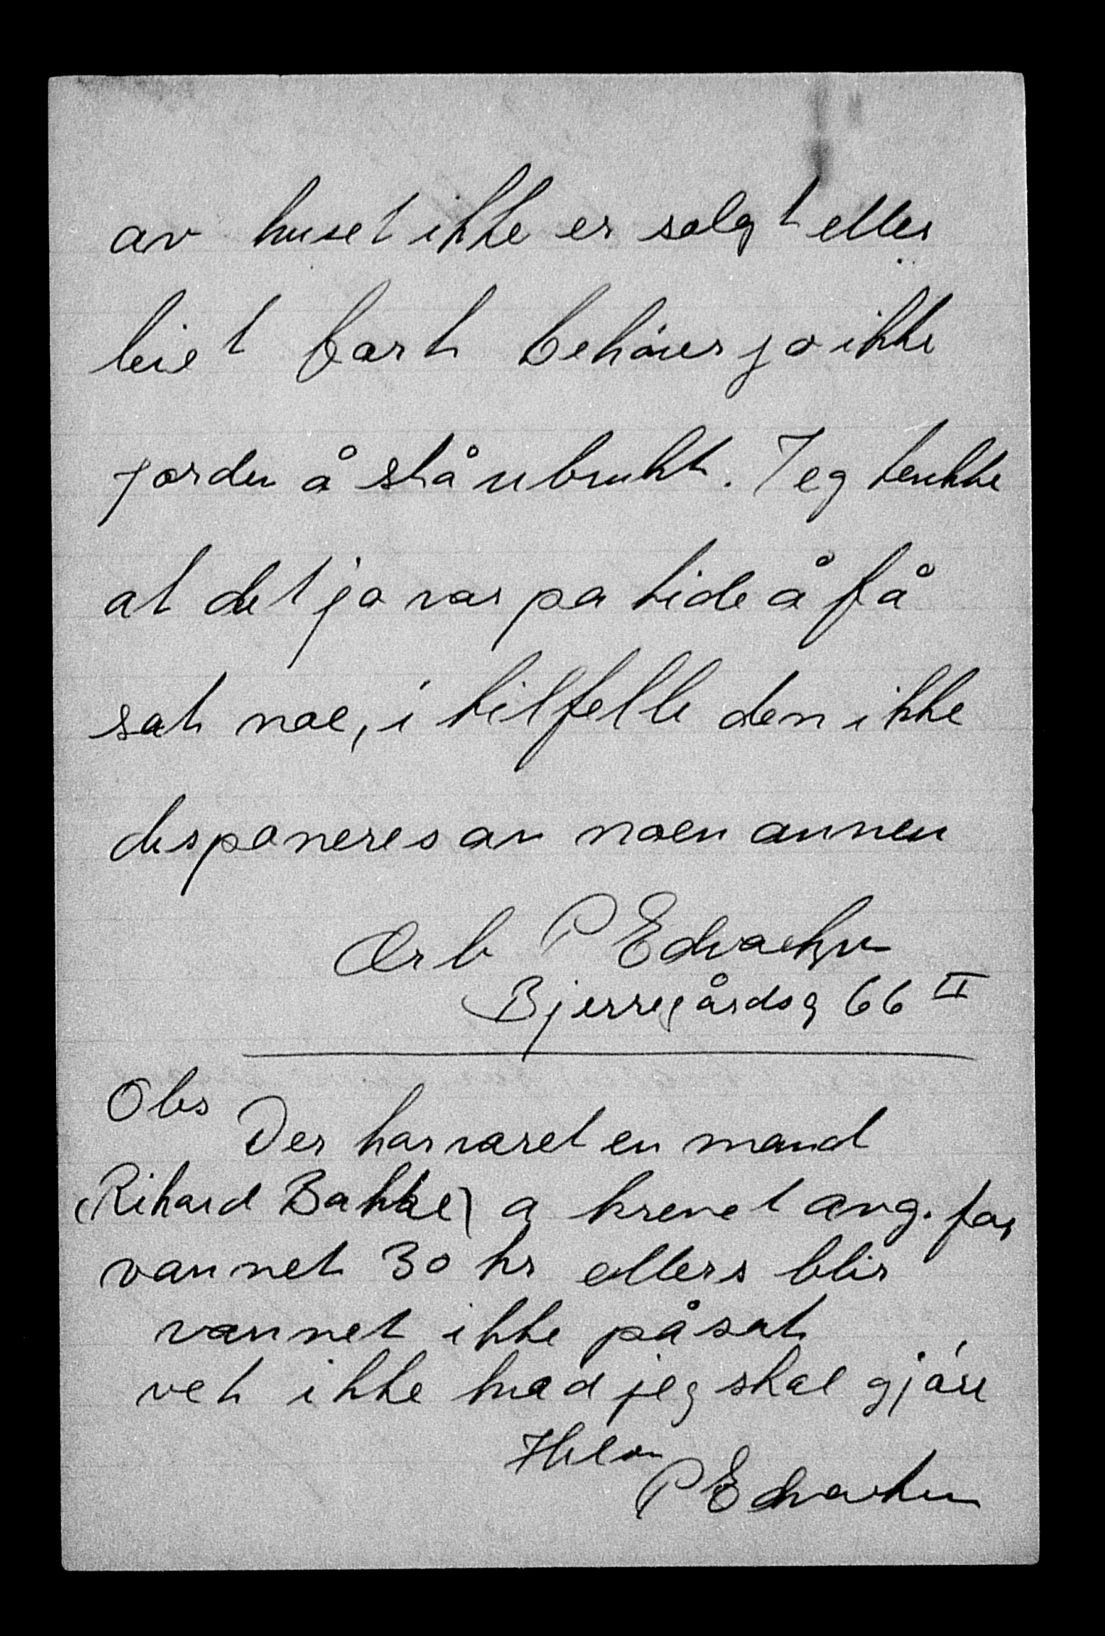 av huset ikke er solgt eller
leiet bort behøver jo ikke
jorden å stå ubrukt. Jeg tenkte
at det jo var pa tide å få
sat noe, i tilfelle den ikke
disponeres av noen annen
Ærb P Edvardsen
Bjerregårdsg 66 II
Obs
Der har været en mand
(Rihard Bakke) a krevet ang. for
vannet 30 kr ellers blir
vannet ikke påsat
vet ikke hvad jeg skal gjøre
Hilsen
P Edvardsen